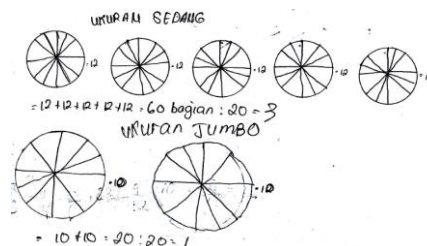 UKURAN SEDANG
=12 =12 =12 =12
=12+12+12+12+12=60 bagian : 20 = 3
UKURAN JUMBO
=10 =10
= 10+10=20:20=1